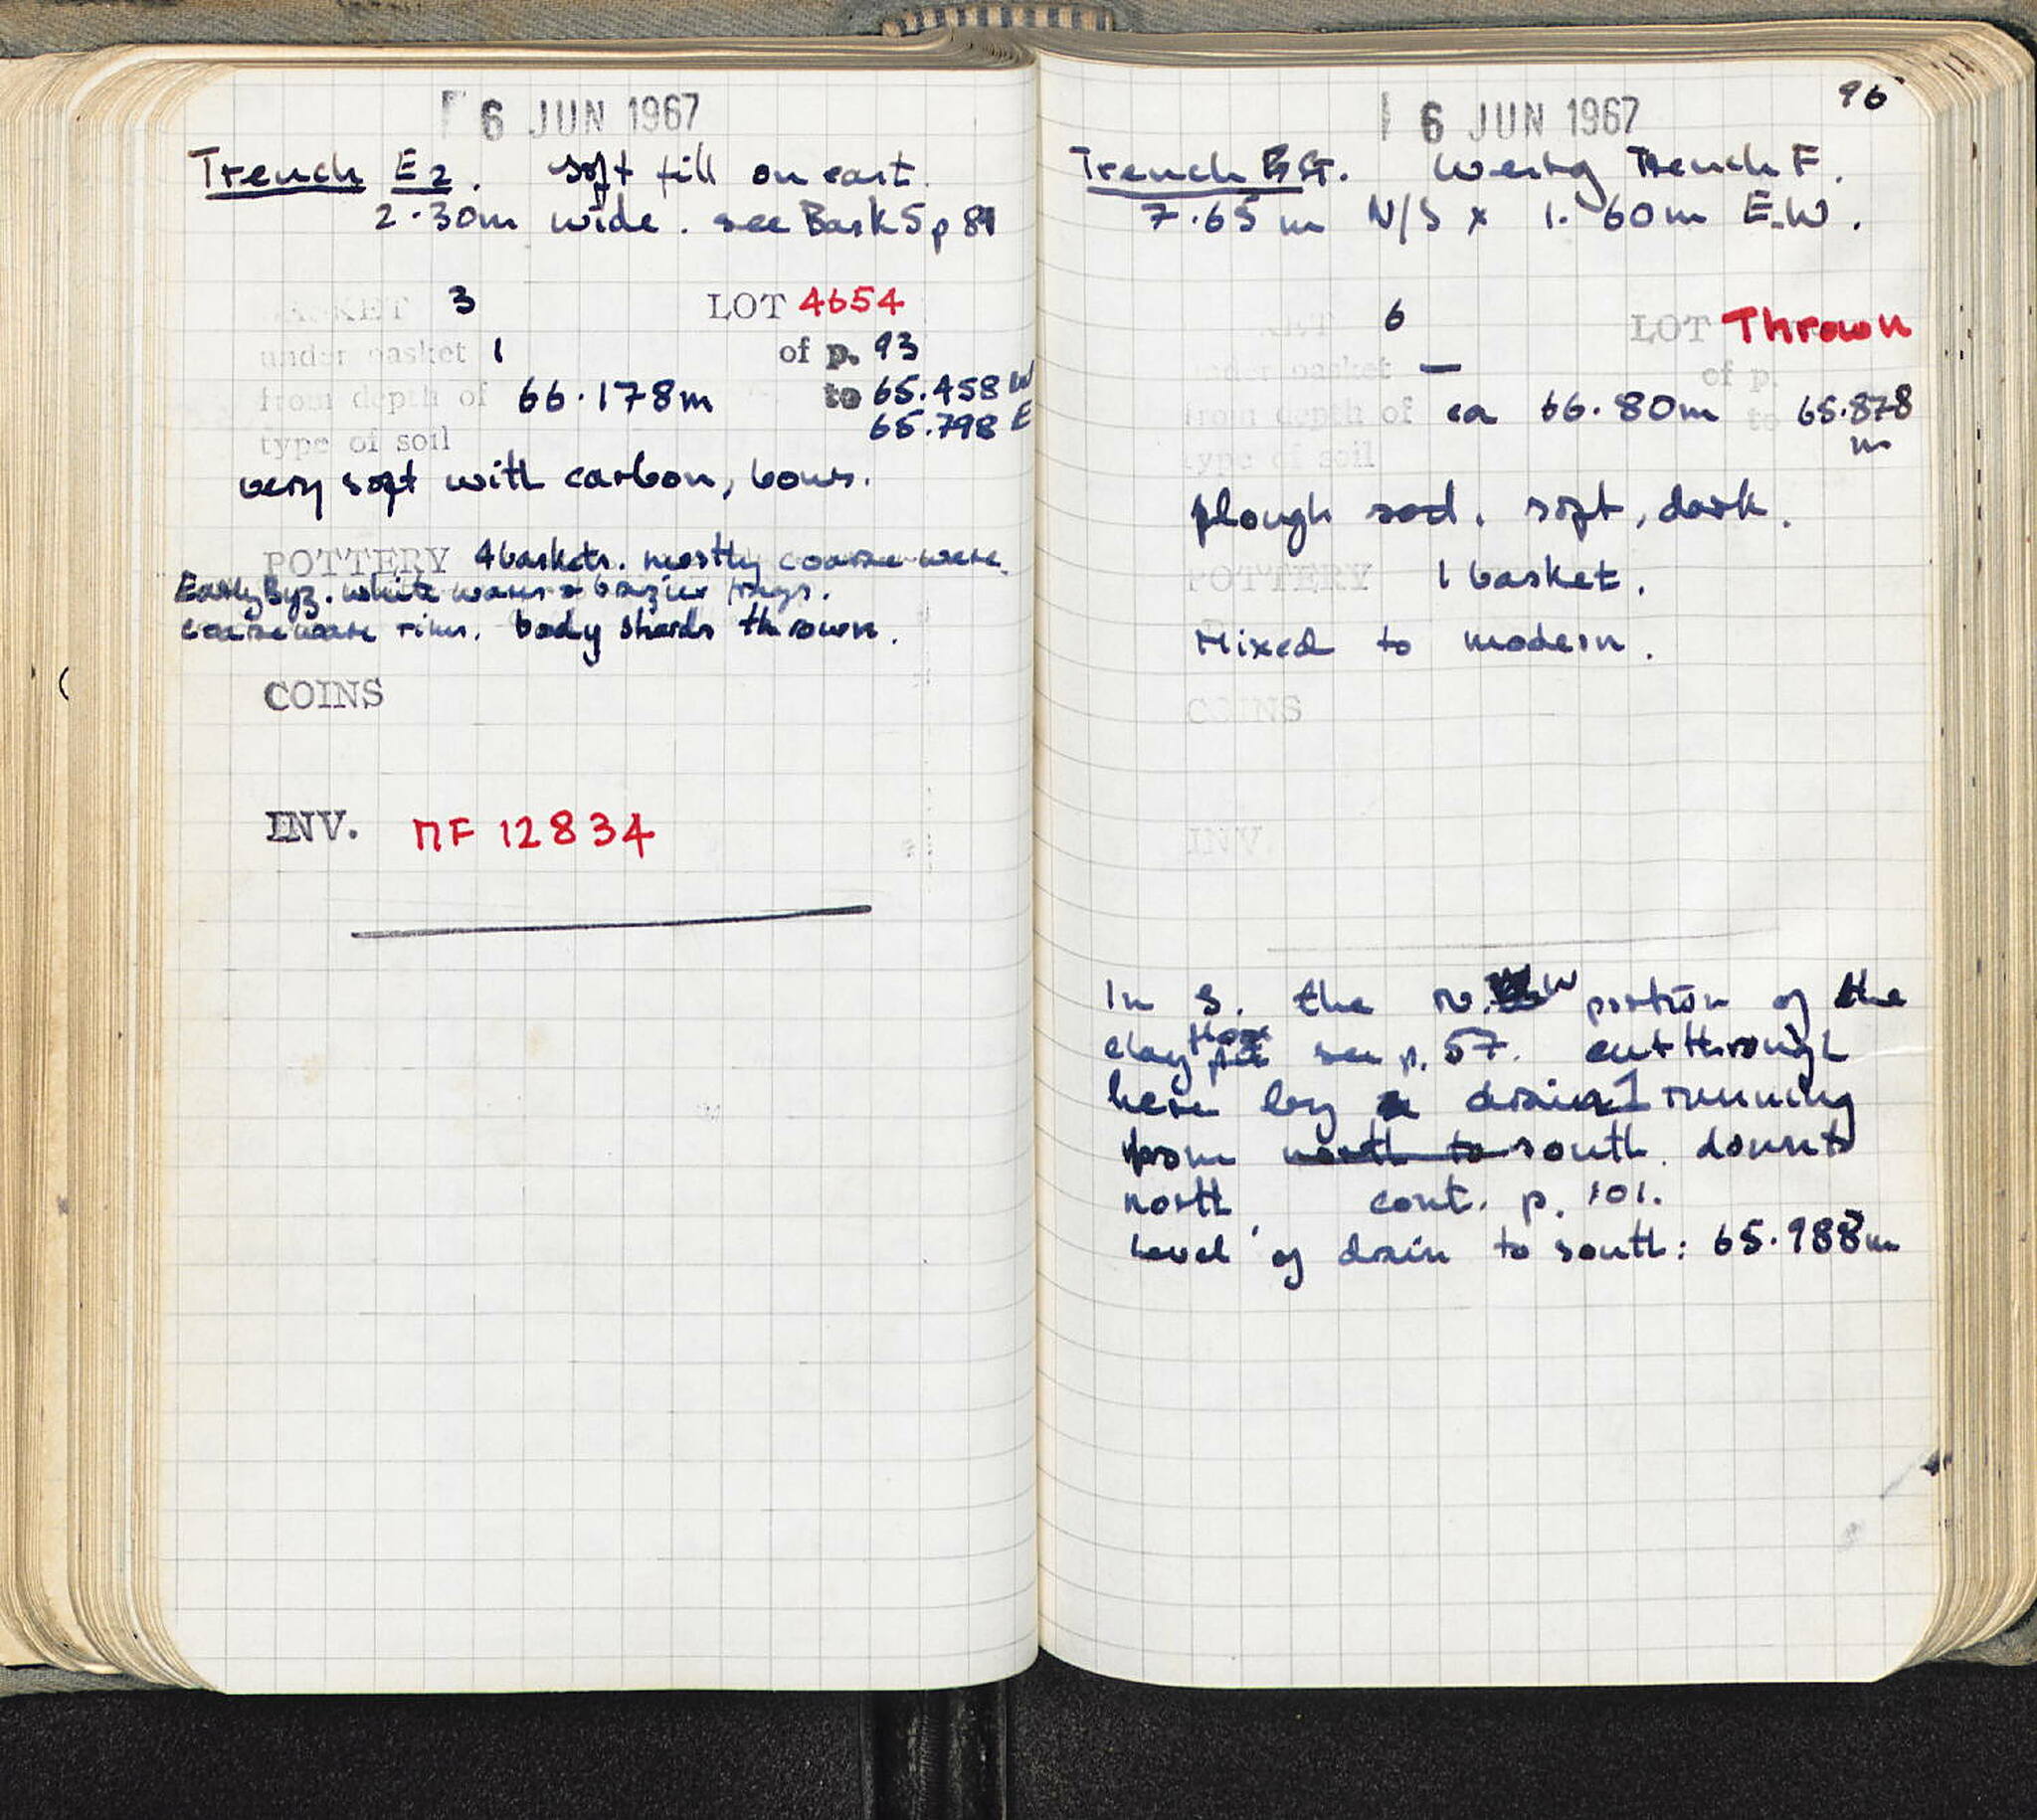 6 JUN 1967
Trench E2. Soft fill on east.
2.30m wide. see Bask 5 p 89
BASKET 3 LOT 4654
under basket 1 of p. 93
from depth of 66.178m to 65.458 W
65.798 E
type of soil
very soft with carbon, bones.
POTTERY 4 baskets. mostly coarse ware.
Early Byz. white ware & brazier frags.
coarseware rims. body sherds thrown.
COINS
INV. MF 12834
96
6 JUN 1967
Trench G. West of Trench F.
7.65 m N/S x 1.60m E.W.
BASKET 6 LOT Thrown
under basket — of p.
from depth of ca 66.80m to 65.878
m
type of soil
plough soil. soft, dark.
POTTERY 1 basket.
Mixed to modern.
COINS
INV.
In S. the N.W portion of the
clay floor see p. 57. cut through
here by drain 1 running
from north to south down to
north. cont. p. 101.
Level of drain to south: 65.988m